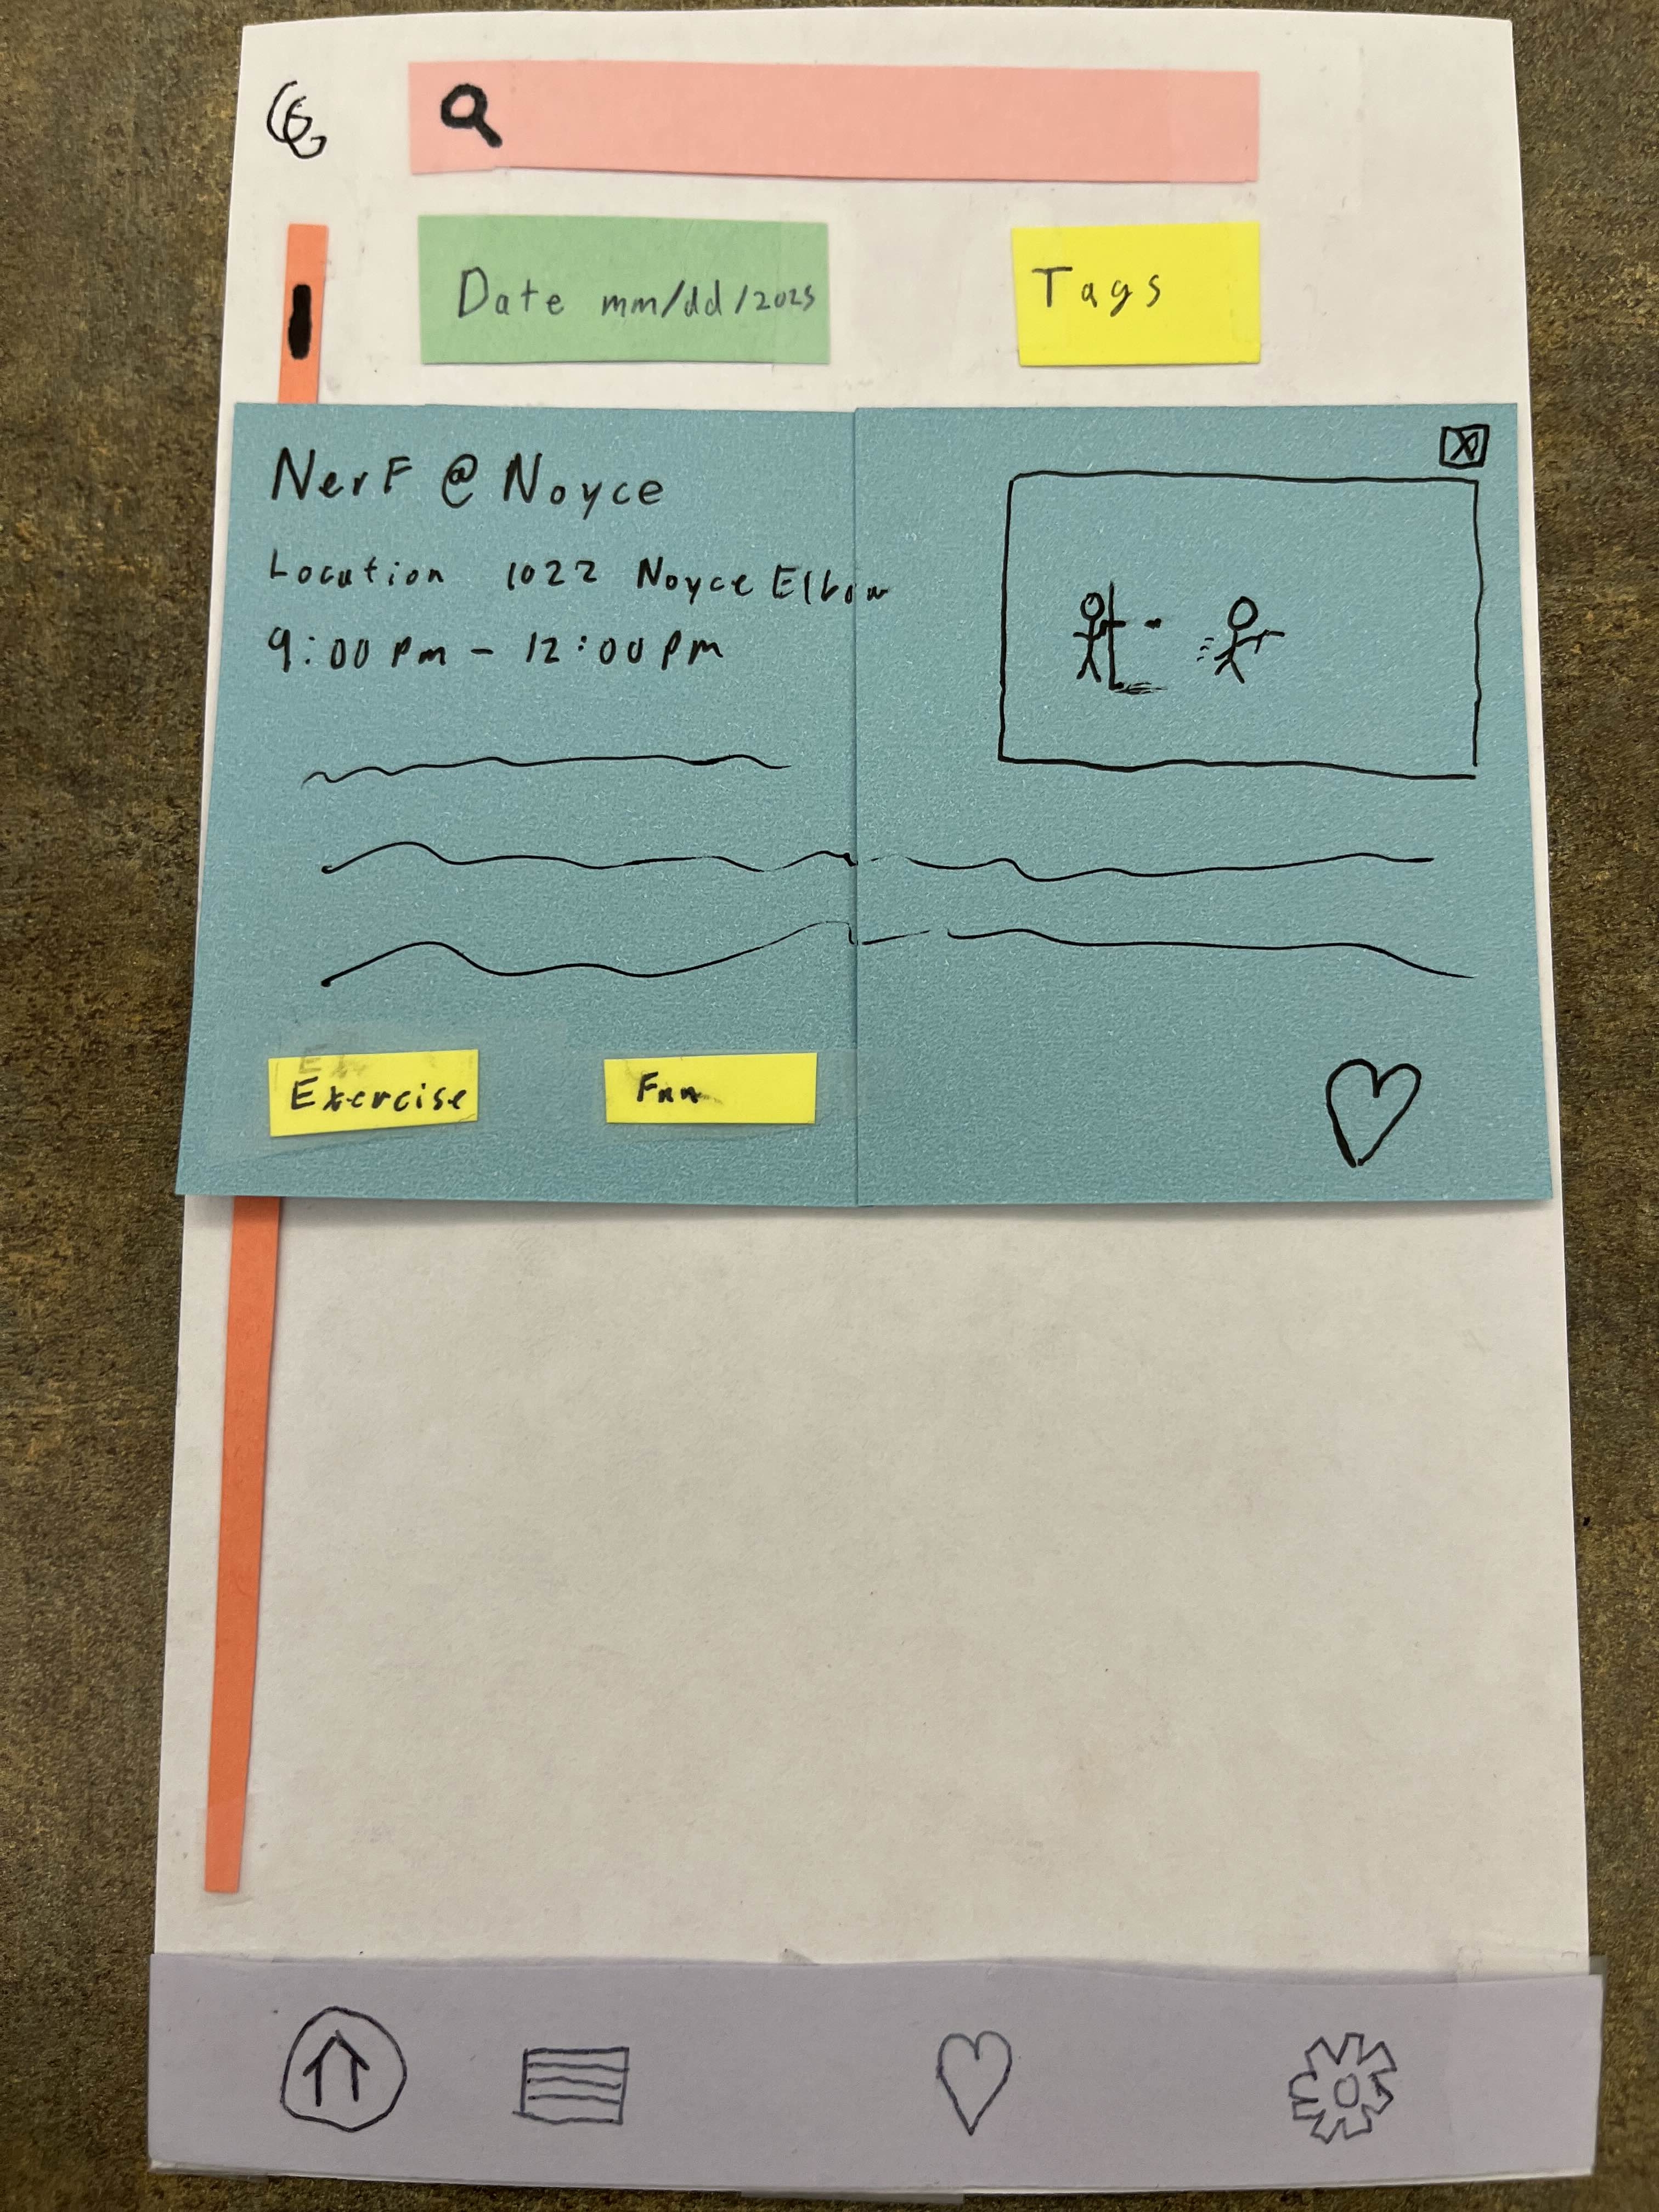 Date mm/dd/2025
Tags
Nerf @ Noyce
Location 1022 Noyce Elbow
9:00 Pm - 12:00 Pm
Exercise
Fun